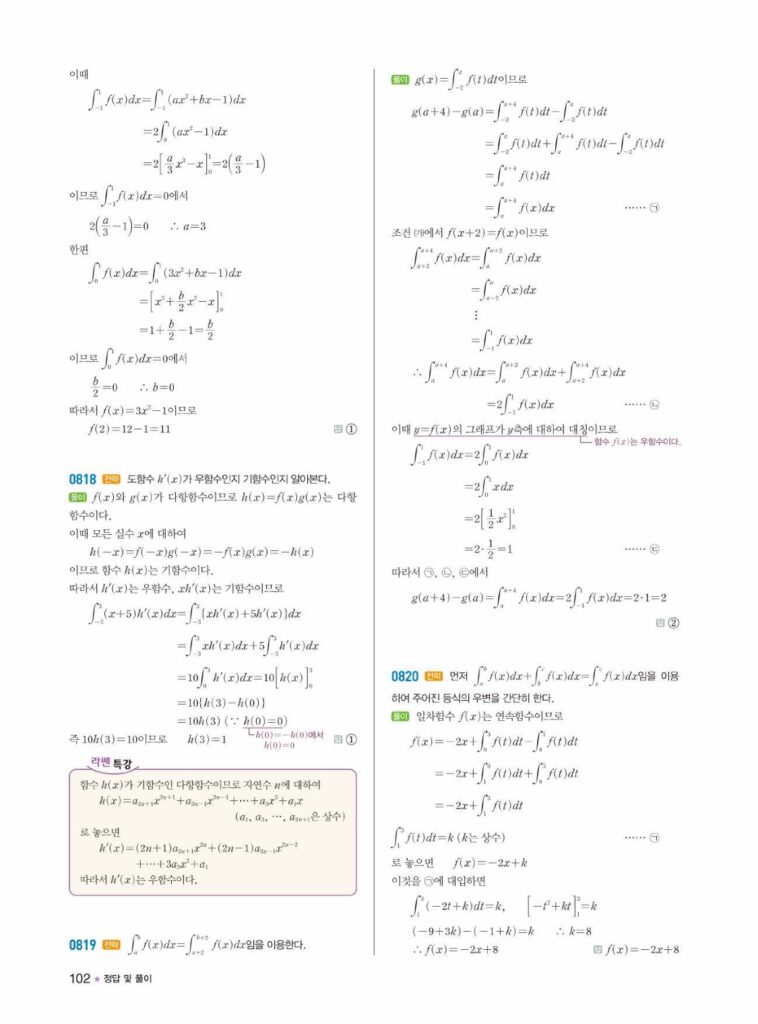 이때
∫_{-1}^{1} f(x)dx=∫_{-1}^{1} (ax²+bx-1)dx
=2∫_{0}^{1} (ax²-1)dx
=2[a/3 x³-x]_{0}^{1}=2(a/3-1)
이므로 ∫_{-1}^{1} f(x)dx=0에서
2(a/3-1)=0 ∴ a=3
한편
∫_{0}^{1} f(x)dx=∫_{0}^{1} (3x²+bx-1)dx
=[x³+b/2 x²-x]_{0}^{1}
=1+b/2-1=b/2
이므로 ∫_{0}^{1} f(x)dx=0에서
b/2=0 ∴ b=0
따라서 f(x)=3x²-1이므로
f(2)=12-1=11 답 ①
0818 전략 도함수 h'(x)가 우함수인지 기함수인지 알아본다.
풀이 f(x)와 g(x)가 다항함수이므로 h(x)=f(x)g(x)는 다항
함수이다.
이때 모든 실수 x에 대하여
h(-x)=f(-x)g(-x)=-f(x)g(x)=-h(x)
이므로 함수 h(x)는 기함수이다.
따라서 h'(x)는 우함수, xh'(x)는 기함수이므로
∫_{-3}^{3} (x+5)h'(x)dx=∫_{-3}^{3} {xh'(x)+5h'(x)}dx
=∫_{-3}^{3} xh'(x)dx+5∫_{-3}^{3} h'(x)dx
=10∫_{0}^{3} h'(x)dx=10[h(x)]_{0}^{3}
=10{h(3)-h(0)}
=10h(3) (∵ h(0)=0)
h(0)=-h(0)에서
h(0)=0
즉 10h(3)=10이므로 h(3)=1 답 ①
라쎈 특강
함수 h(x)가 기함수인 다항함수이므로 자연수 n에 대하여
h(x)=a_{2n+1}x^{2n+1}+a_{2n-1}x^{2n-1}+⋯+a₃x³+a₁x
(a₁, a₃, ⋯, a_{2n+1}은 상수)
로 놓으면
h'(x)=(2n+1)a_{2n+1}x^{2n}+(2n-1)a_{2n-1}x^{2n-2}
+⋯+3a₃x²+a₁
따라서 h'(x)는 우함수이다.
0819 전략 f(x)dx= f(x)dx임을 이용한다.
102 ★ 정답 및 풀이
풀이 g(x)=∫_{-2}^{x} f(t)dt이므로
g(a+4)-g(a)=∫_{-2}^{a+4} f(t)dt-∫_{-2}^{a} f(t)dt
=∫_{-2}^{a} f(t)dt+∫_{a}^{a+4} f(t)dt-∫_{-2}^{a} f(t)dt
=∫_{a}^{a+4} f(t)dt
=∫_{a}^{a+4} f(x)dx ⋯⋯ ㉠
조건 ㈎에서 f(x+2)=f(x)이므로
∫_{a+2}^{a+4} f(x)dx=∫_{a}^{a+2} f(x)dx
=∫_{a-2}^{a} f(x)dx
⋮
=∫_{-1}^{1} f(x)dx
∴ ∫_{a}^{a+4} f(x)dx=∫_{a}^{a+2} f(x)dx+∫_{a+2}^{a+4} f(x)dx
=2∫_{-1}^{1} f(x)dx ⋯⋯ ㉡
이때 y=f(x)의 그래프가 y축에 대하여 대칭이므로
함수 f(x)는 우함수이다.
∫_{-1}^{1} f(x)dx=2∫_{0}^{1} f(x)dx
=2∫_{0}^{1} xdx
=2[1/2 x²]_{0}^{1}
=2·1/2=1 ⋯⋯ ㉢
따라서 ㉠, ㉡, ㉢에서
g(a+4)-g(a)=∫_{a}^{a+4} f(x)dx=2∫_{-1}^{1} f(x)dx=2·1=2
답 ②
0820 전략 먼저 f(x)dx+ f(x)dx= f(x)dx임을 이용
하여 주어진 등식의 우변을 간단히 한다.
풀이 일차함수 f(x)는 연속함수이므로
f(x)=-2x+ f(t)dt- f(t)dt
=-2x+ f(t)dt+ f(t)dt
=-2x+∫_{1}^{3} f(t)dt
∫_{1}^{3} f(t)dt=k (k는 상수) ⋯⋯ ㉠
로 놓으면 f(x)=-2x+k
이것을 ㉠에 대입하면
∫_{1}^{3} (-2t+k)dt=k, [-t²+kt]_{1}^{3}=k
(-9+3k)-(-1+k)=k ∴ k=8
∴ f(x)=-2x+8 답 f(x)=-2x+8